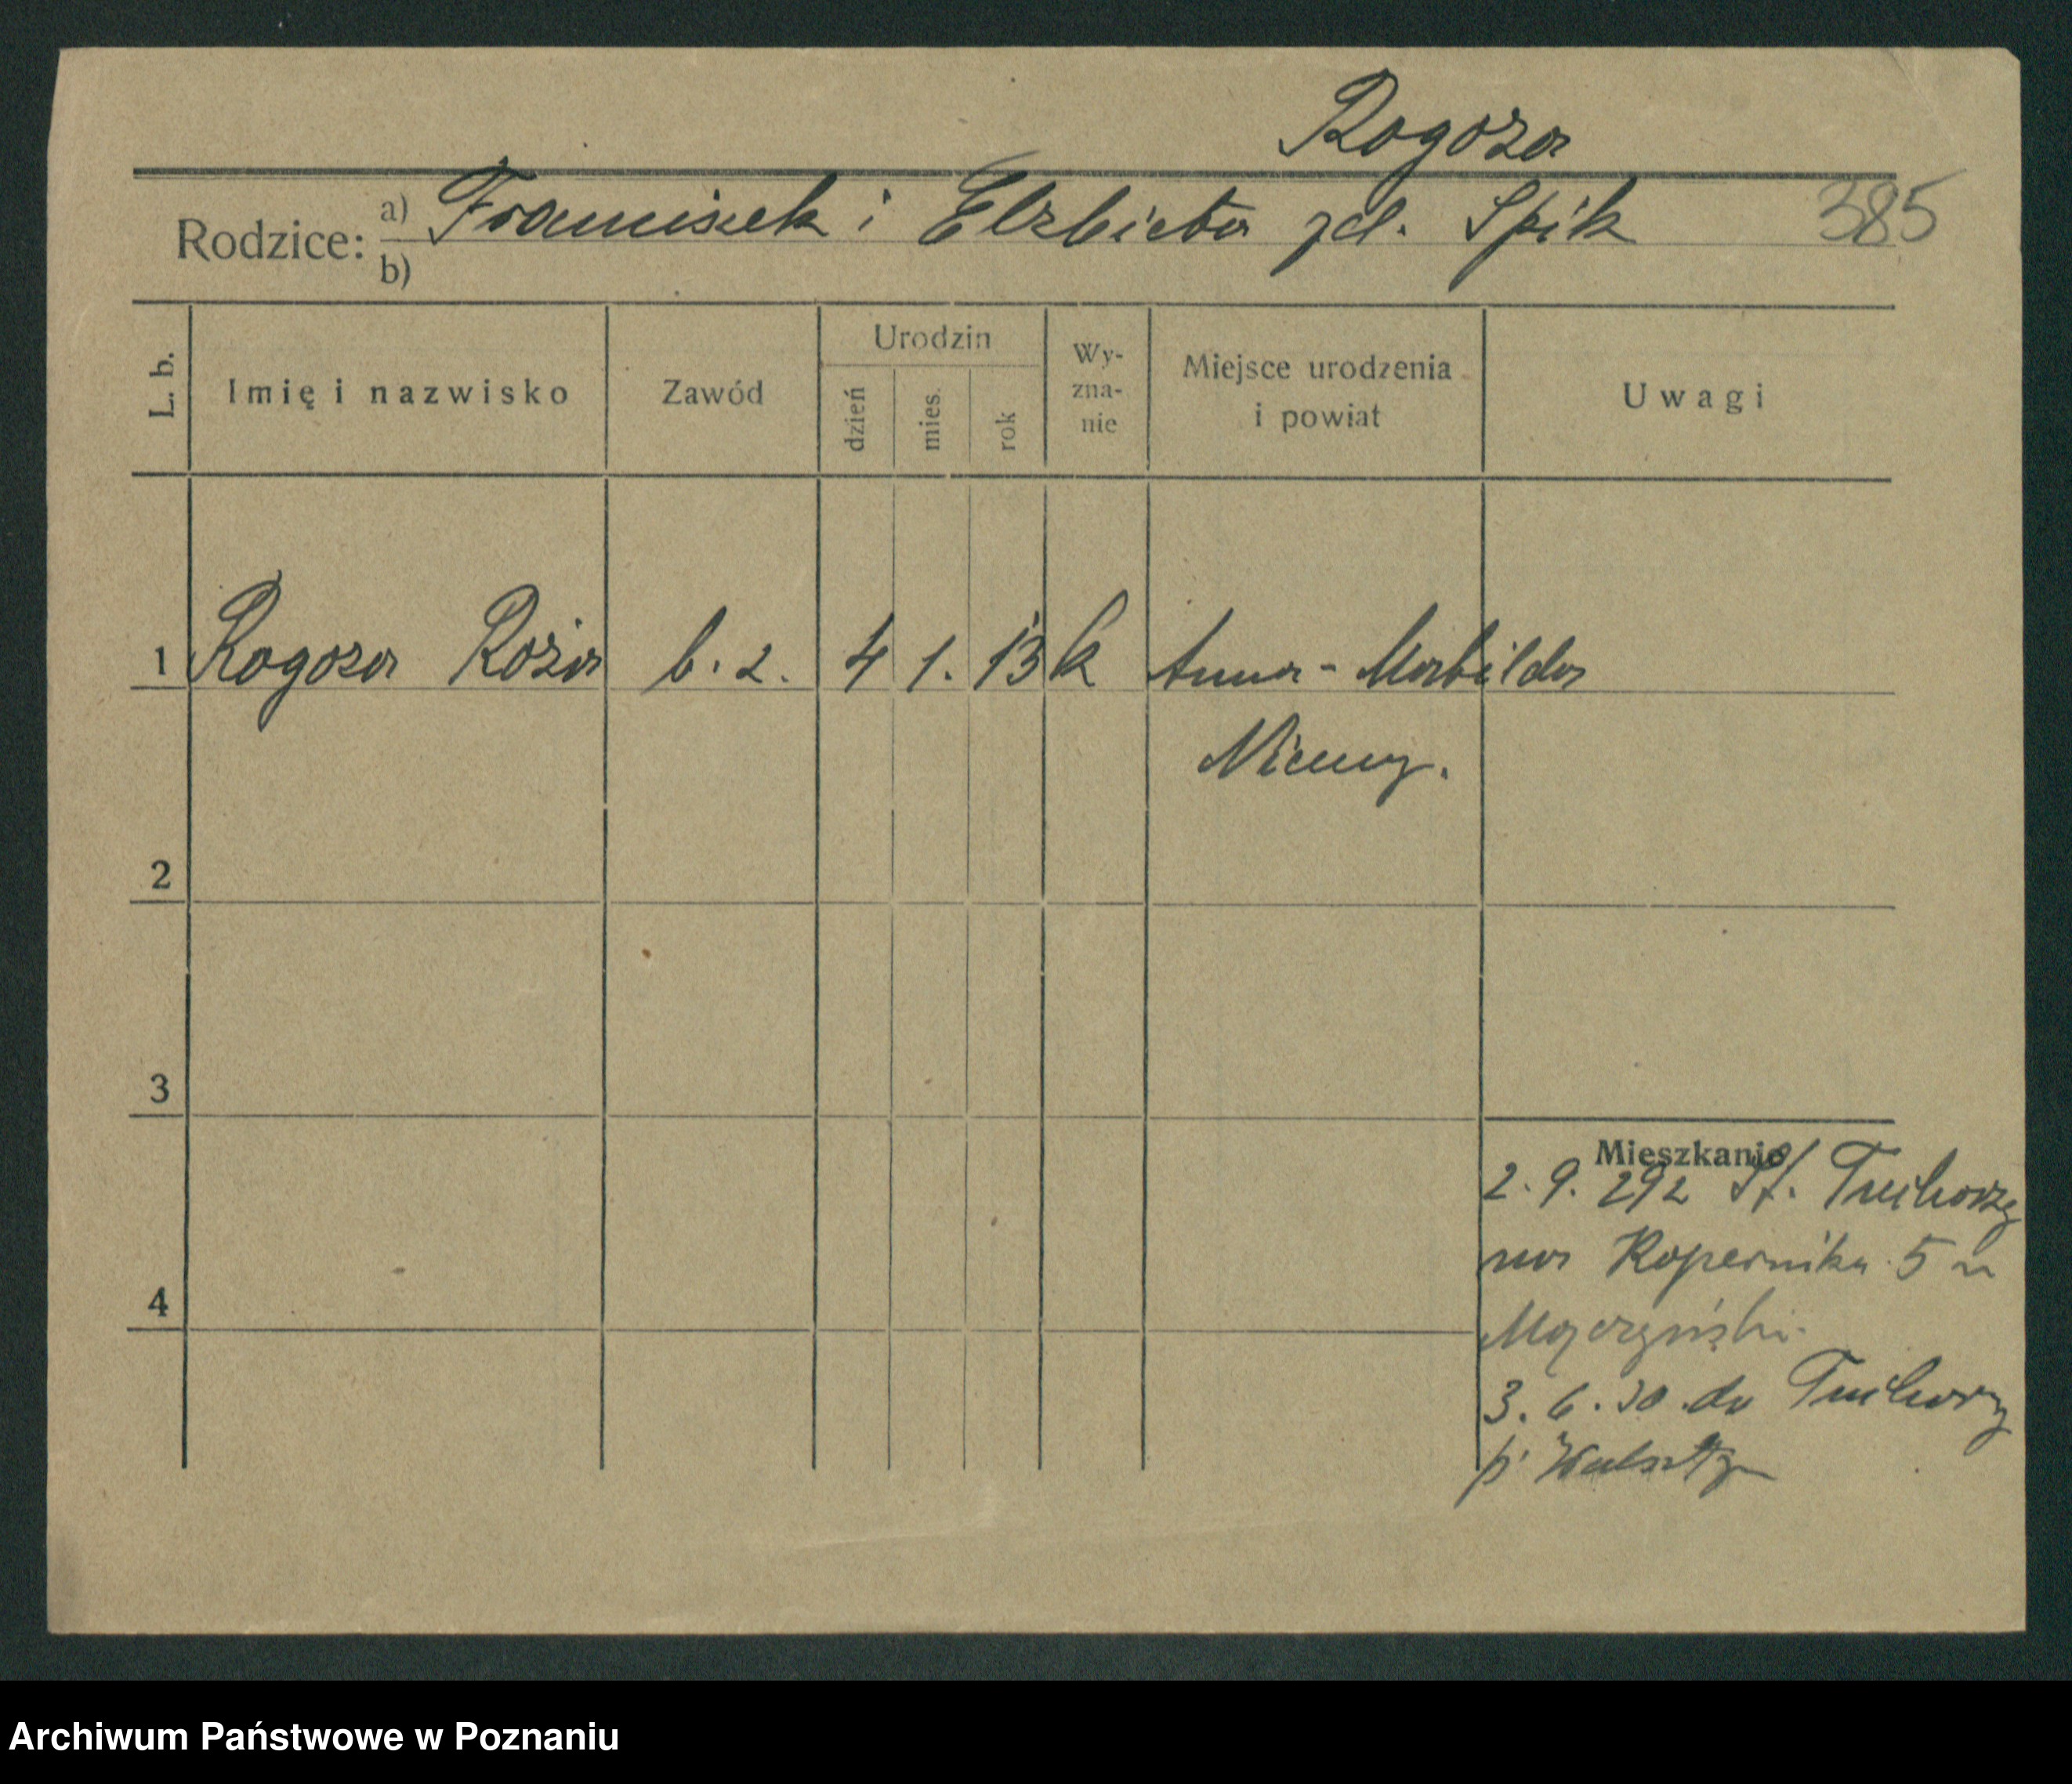 Rogoza
Rodzice: a) Franciszek i Elzbieta zd. Spik 385
b)
L. b. Imię i nazwisko Zawód Urodzin dzień mies. rok Wy-zna-nie Miejsce urodzenia i powiat Uwagi
1 Rogoza Róża b. z. 4 1. 13 k Anna-Matylda
Niemcy.
2
3
4
Mieszkanie
2. 9. 292 St. Tuchorzy
na Kopernika 5 u
3. 6. 30 do Tuchorzy
p. Wolsztyn
Archiwum Państwowe w Poznaniu